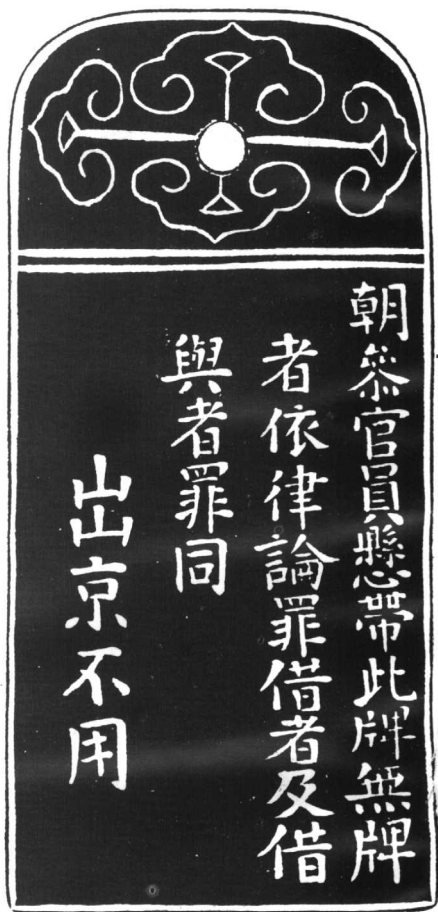 朝叅官員懸帶此牌無牌
者依律論罪借者及借
與者罪同
出京不用